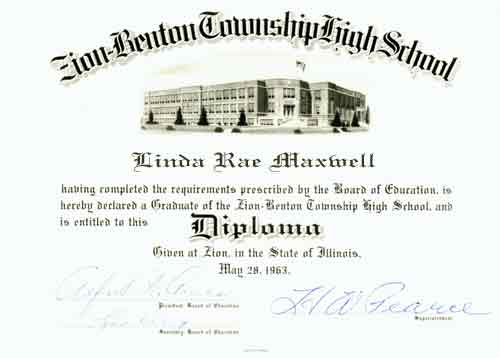 Zion-Benton Township High School
Linda Rae Maxwell
having completed the requirements prescribed by the Board of Education, is
hereby declared a Graduate of the Zion-Benton Township High School, and
is entitled to this Diploma
Given at Zion, in the State of Illinois,
May 28, 1963.
President Board of Education
H W Pearce
Superintendent
Secretary Board of Education